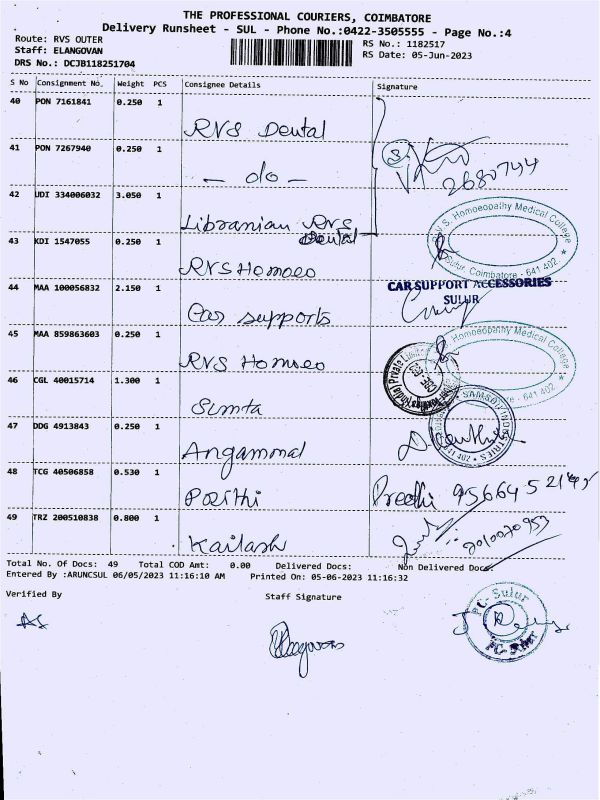 THE PROFESSIONAL COURIERS, COIMBATORE
Delivery Runsheet - SUL - Phone No.:0422-3505555 - Page No.:4
Route: RVS OUTER
Staff: ELANGOVAN
DRS No.: DCJB118251704
RS No.: 1182517
RS Date: 05-Jun-2023
S No Consignment No. Weight PCS Consignee Details Signature
40 PON 7161841 0.250 1
RVS Dental
41 PON 7267940 0.250 1
— do —
2680744
42 UDI 334006032 3.050 1
Librarian RVS
Dental
R.V.S. Homoeopathy Medical College
Sulur, Coimbatore - 641 402
43 KDI 1547055 0.250 1
RVS Homoeo
44 MAA 100056832 2.150 1
CAR SUPPORT ACCESSORIES
SULUR
Car supports
45 MAA 859863603 0.250 1
Homoeopathy Medical College
641 402
RVS Homoeo
46 CGL 40015714 1.300 1
(India) Private Limited
Simta
47 DDG 4913843 0.250 1
INDUSTRIES
Angammal
48 TCG 40506858 0.530 1
Prithi
Preethi
49 TRZ 200510838 0.800 1
Kailash
Total No. Of Docs: 49 Total COD Amt: 0.00 Delivered Docs: Non Delivered Docs:
Entered By :ARUNCSUL 06/05/2023 11:16:10 AM Printed On: 05-06-2023 11:16:32
Verified By Staff Signature
PC- Sulur
Elangovan